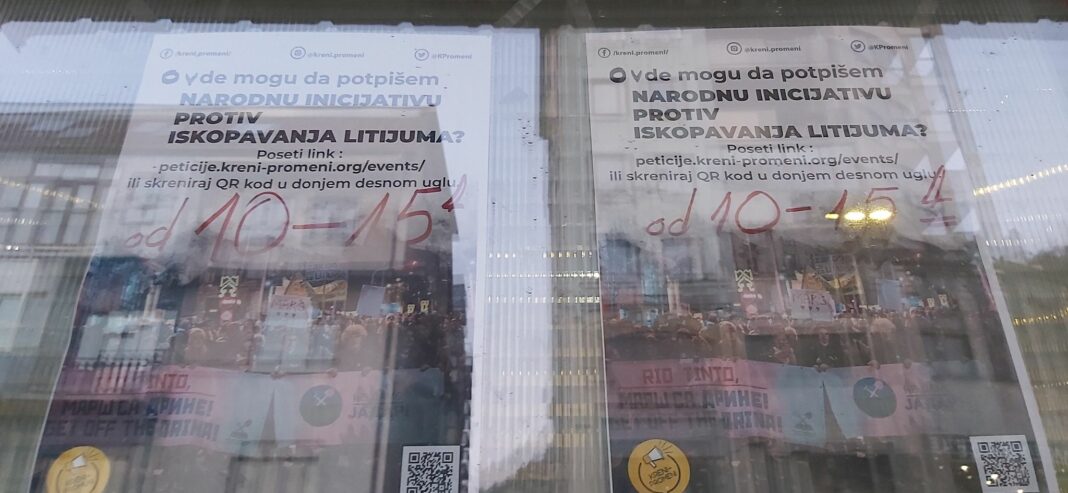 /kreni.promeni/ @kreni.promeni @KPromeni
Ovde mogu da potpišem
NARODNU INICIJATIVU
PROTIV
ISKOPAVANJA LITIJUMA?
Poseti link :
peticije.kreni-promeni.org/events/
ili skreniraj QR kod u donjem desnom uglu
od 10-15
МАРШ СА ДРИНЕ!
GET OFF THE DRINA!
/kreni.promeni/ @kreni.promeni @KPromeni
Ovde mogu da potpišem
NARODNU INICIJATIVU
PROTIV
ISKOPAVANJA LITIJUMA?
Poseti link :
peticije.kreni-promeni.org/events/
ili skreniraj QR kod u donjem desnom uglu
od 10-15
RIO TINTO,
МАРШ СА ДРИНЕ!
GET OFF THE DRINA!
KRENI-
PROMENI